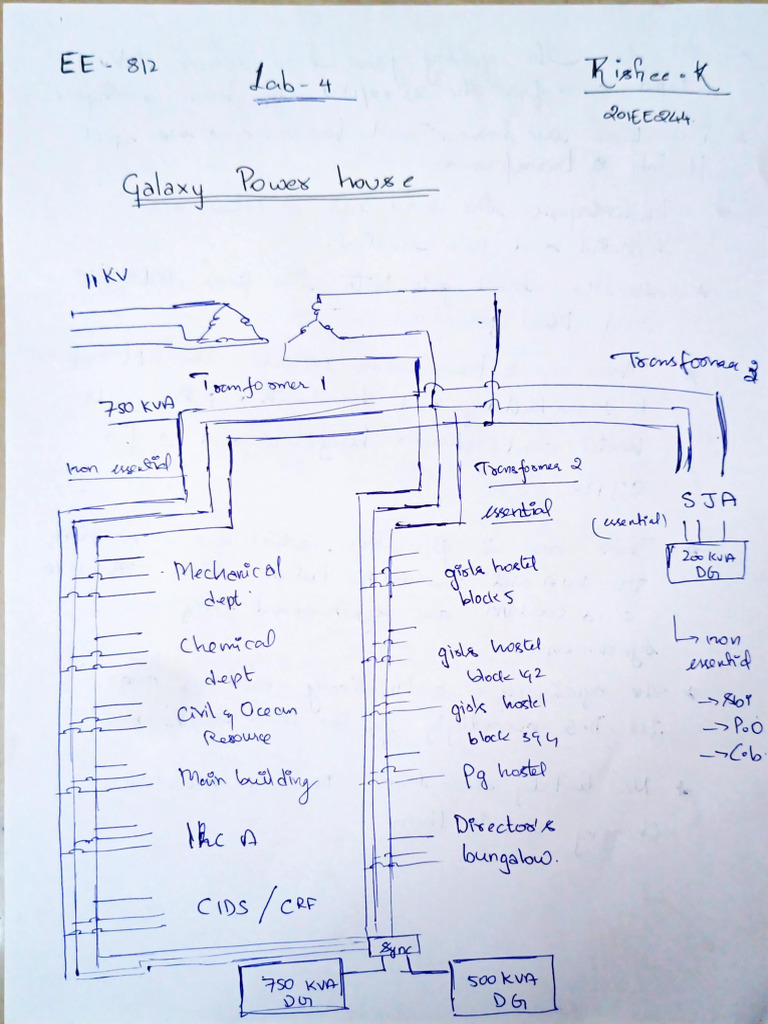 EE - 812
Lab - 4
Rishee . K
201EE0244
Galaxy Power house
11 KV
Transformer 1
Transformer 3
750 KVA
non essential
Transformer 2
essential
SJA
(essential)
200 KVA
DG
Mechanical
dept
girls hostel
block 5
non
essential
Chemical
dept
girls hostel
block 1&2
→ SBI
→ P.O
→ Cob
Civil & Ocean
Resource
girls hostel
block 3&4
Main building
Pg hostel
Director's
bungalow.
CIDS / CRF
Sync
750 KVA
DG
500 KVA
DG